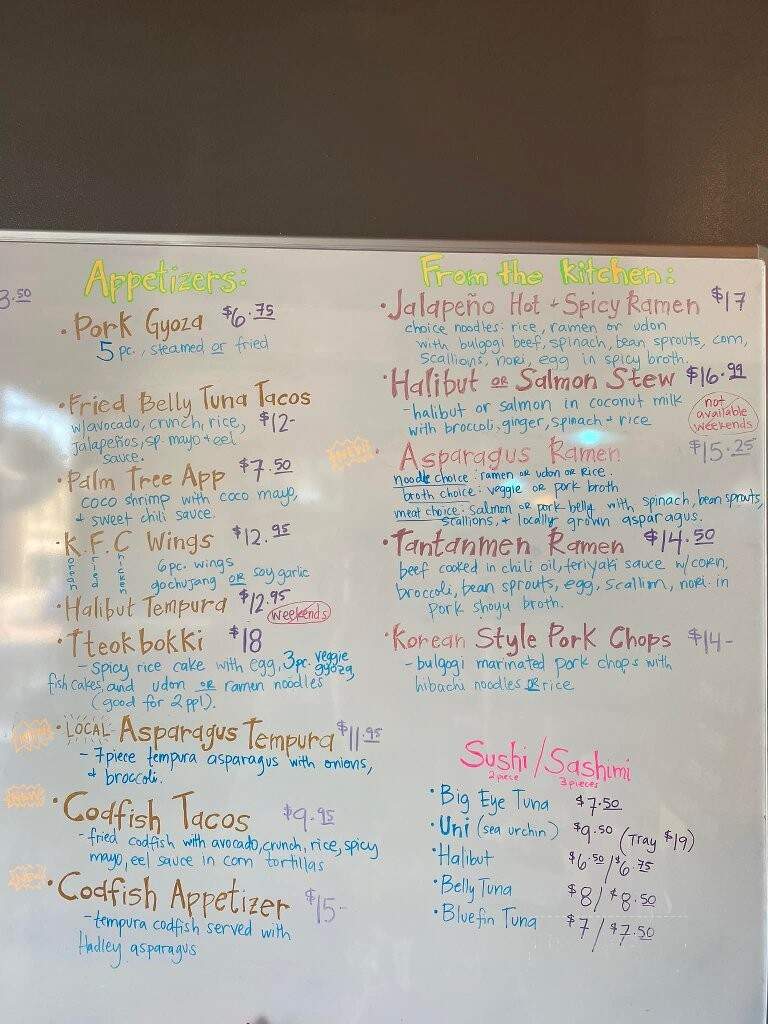 3.50
Appetizers:
• Pork Gyoza $6.75
5 pc., steamed or fried
• Fried Belly Tuna Tacos
w/avocado, crunch, rice, $12-
jalapeños, sp. mayo + eel
sauce.
• Palm Tree App $7.50
coco shrimp with coco mayo,
+ sweet chili sauce.
• K.F.C Wings $12.95
orean ried hicken
6pc. wings
gochujang OR soy garlic
• Halibut Tempura $12.95
weekends
• Tteokbokki $18
- spicy rice cake with egg, 3pc. veggie gyoza,
fish cakes, and udon OR ramen noodles
(good for 2 ppl).
NEW • LOCAL Asparagus Tempura $11.95
- 7 piece tempura asparagus with onions,
+ broccoli.
NEW • Codfish Tacos $9.95
- fried codfish with avocado, crunch, rice, spicy
mayo, eel sauce in corn tortillas
NEW • Codfish Appetizer $15-
- tempura codfish served with
Hadley asparagus
From the kitchen:
• Jalapeño Hot + Spicy Ramen $17
choice noodles: rice, ramen or udon
with bulgogi beef, spinach, bean sprouts, corn,
scallions, nori, egg in spicy broth.
• Halibut OR Salmon Stew $16.99
- halibut or salmon in coconut milk
with broccoli, ginger, spinach + rice
not
available
weekends
NEW • Asparagus Ramen $15.25
noodle choice: ramen OR udon OR rice.
broth choice: veggie OR pork broth
meat choice: salmon OR pork belly with spinach, bean sprouts,
scallions, + locally grown asparagus.
• Tantanmen Ramen $14.50
beef cooked in chili oil, teriyaki sauce w/corn,
broccoli, bean sprouts, egg, scallion, nori in
pork shoyu broth.
• Korean Style Pork Chops $14-
- bulgogi marinated pork chops with
hibachi noodles OR rice
Sushi/Sashimi
2 piece 3 pieces
• Big Eye Tuna $7.50
• Uni (sea urchin) $9.50 (Tray $19)
• Halibut $6.50/$6.75
• Belly Tuna $8/$8.50
• Bluefin Tuna $7/$7.50